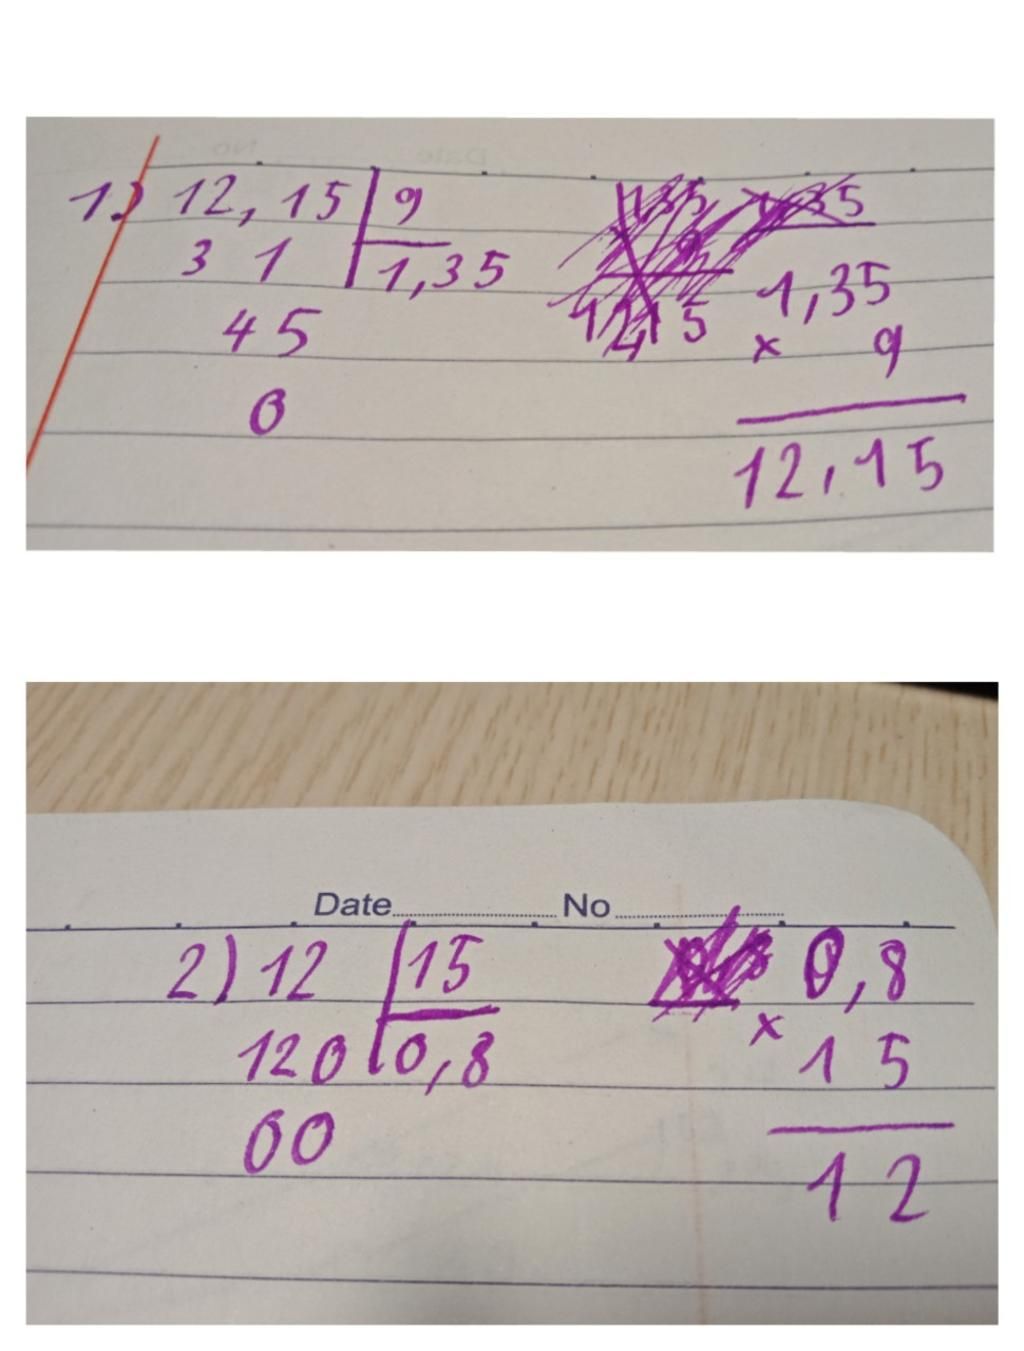 1) 12,15 9 135 1,35
3 1 1,35 9 1,35
45 1215 x 9
0 12,15
Date No
2) 12 15 0,8
120 0,8 x 15
00 12